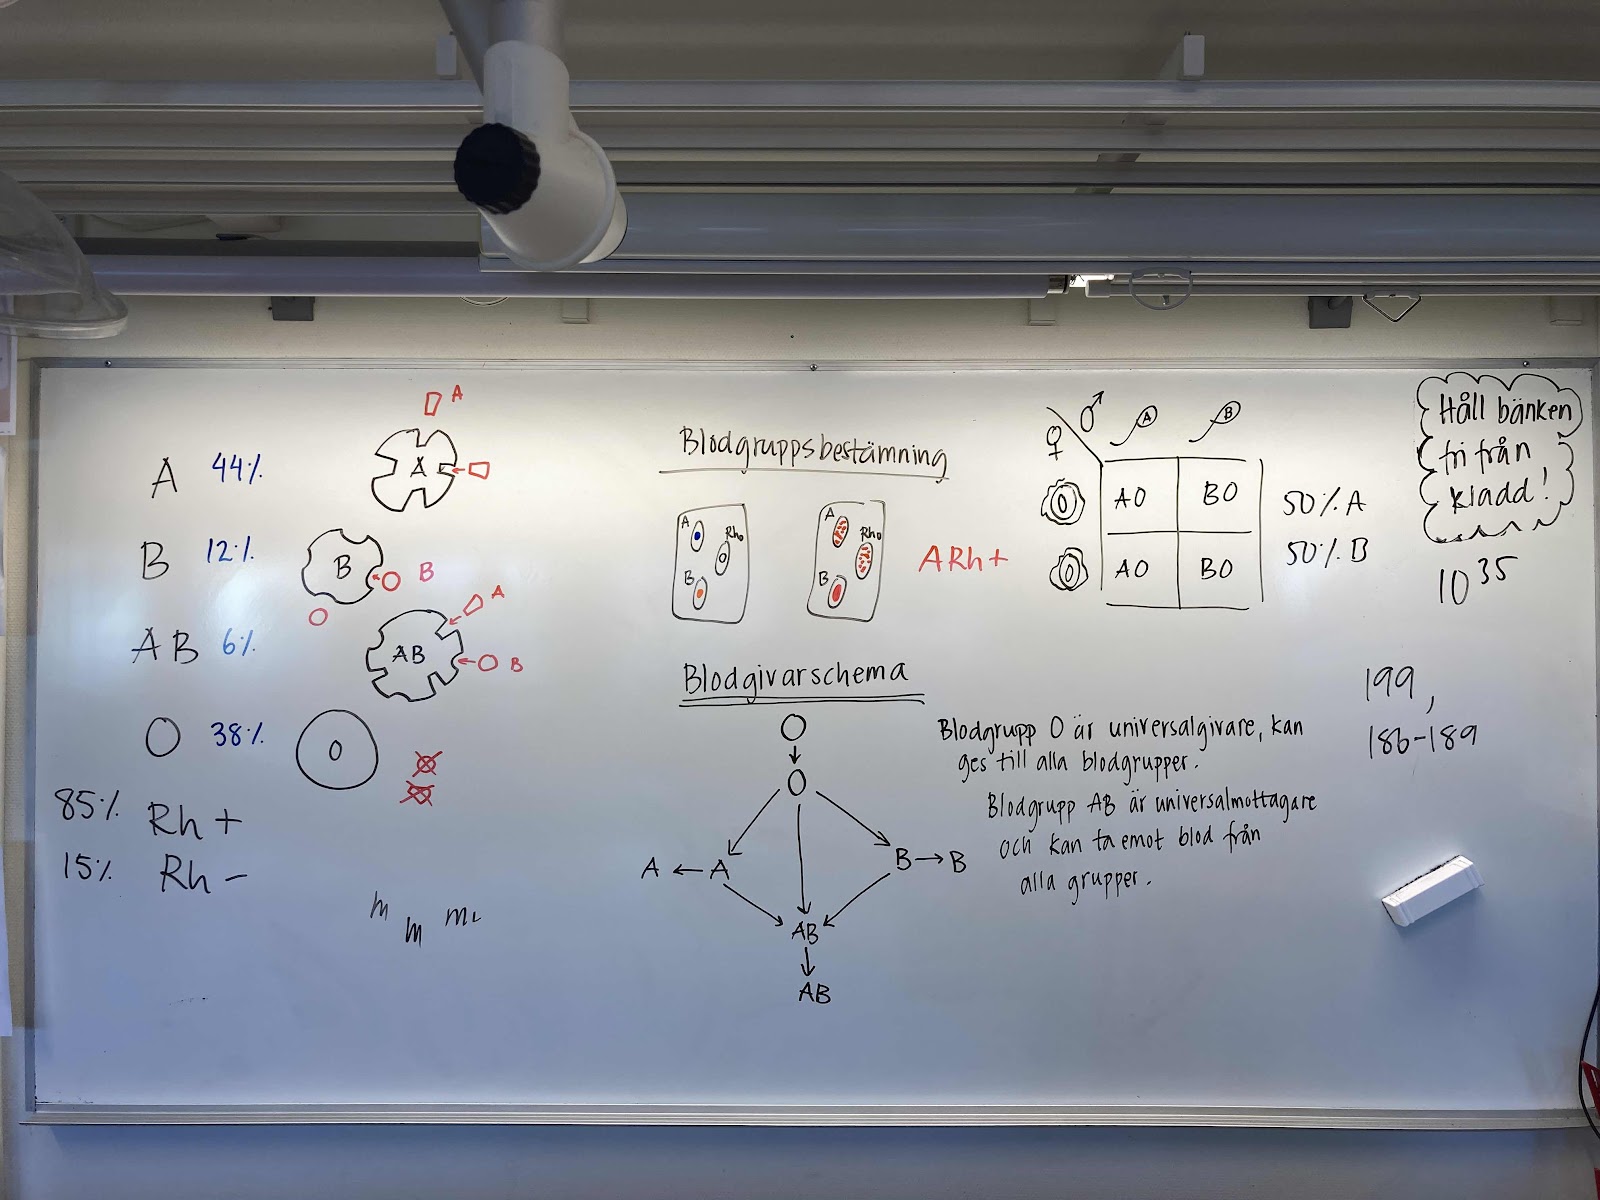 A 44%
B 12%
AB 6%
O 38%
85% Rh +
15% Rh -
A
A
B
B
AB
A
B
O
Blodgruppsbestämning
A
Rho
B
A
Rho
B
ARh+
Blodgivarschema
O
O
A ← A
B → B
AB
AB
Blodgrupp O är universalgivare, kan
ges till alla blodgrupper.
Blodgrupp AB är universalmottagare
och kan ta emot blod från
alla grupper.
♀ ♂
A B
O AO BO
O AO BO
50% A
50% B
Håll bänken
fri från
kladd!
10 35
199,
186-189